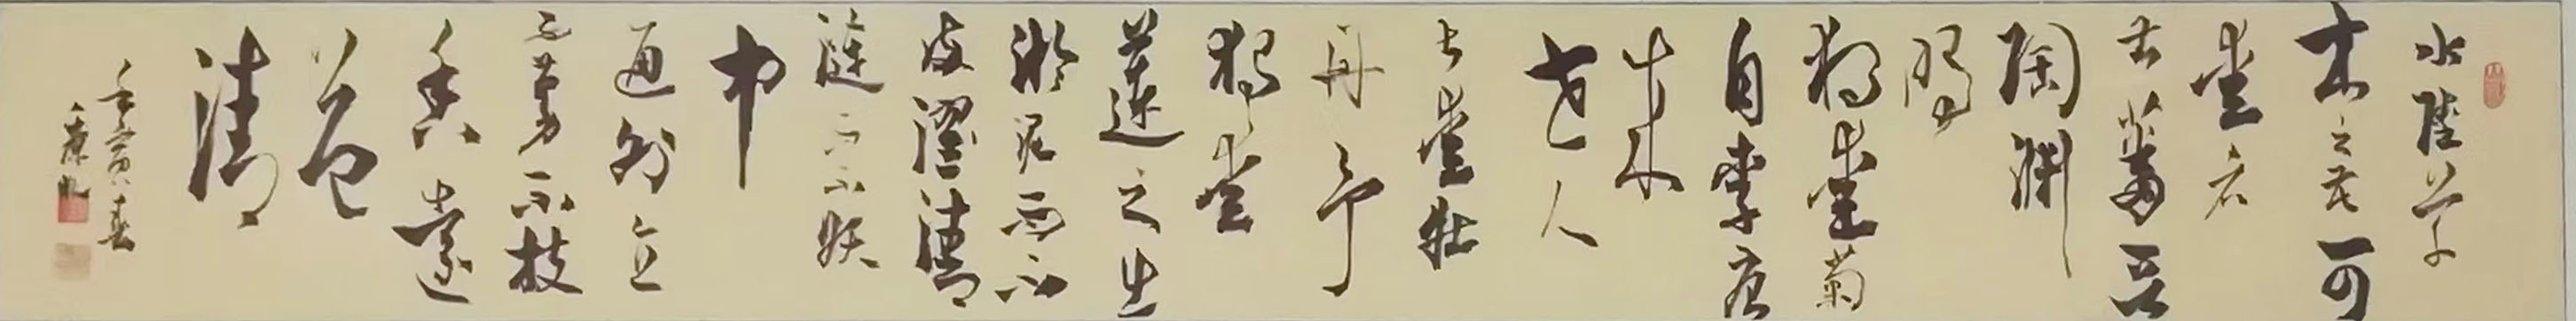 水陸草
木之花可
愛者
甚蕃晉
陶淵
明
獨愛菊
自李唐
来
世人
甚愛牡
丹予
獨愛
蓮之出
淤泥而不
染濯清
漣而不妖
中
通外直
不蔓不枝
香遠
益
清
壬寅春